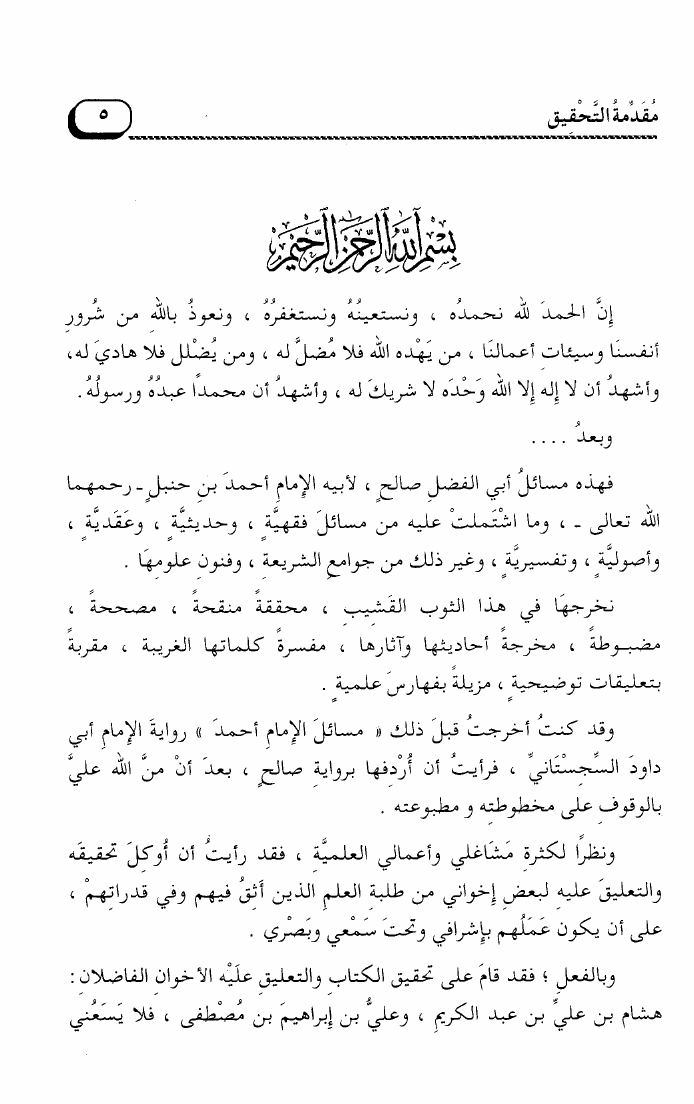 مُقَدِّمَةُ التَّحْقِيقِ
٥
بِسْمِ اللَّهِ الرَّحْمَنِ الرَّحِيمِ
إنَّ الحمدَ لله نحمدُه ، ونستعينُهُ ونستغفرُهُ ، ونعوذُ باللهِ من شُرورِ
أنفسنَا وسيئاتِ أعمالنَا ، من يَهْده الله فلا مُضلَّ له ، ومن يُضْلل فلا هاديَ له،
وأشهدُ أن لا إله إلا الله وَحْدَه لا شريكَ له ، وأشهدُ أن محمدًا عبدُهُ ورسولُهُ .
وبعدُ ....
فهذه مسائلُ أبي الفضلِ صالحٍ ، لأبيه الإمامِ أحمدَ بنِ حنبلٍ ـ رحمهما
الله تعالى ـ ، وما اشْتَملتْ عليه من مسائلَ فقهيَّةٍ ، وحديثيَّةٍ ، وعَقَديَّةٍ ،
وأصوليَّةٍ ، وتفسيريَّةٍ ، وغير ذلك من جوامعِ الشريعةِ ، وفنونِ علومهَا .
نخرجهَا في هذا الثوب القَشيب ، محققةً منقحةً ، مصححةً ،
مضبوطةً ، مخرجةً أحاديثها وآثارها ، مفسرةً كلماتها الغريبة ، مقربةً
بتعليقات توضيحيةٍ ، مزيلةً بفهارسَ علميةٍ .
وقد كنتُ أخرجتُ قبلَ ذلك « مسائلَ الإمامِ أحمدَ » روايةَ الإمامِ أبي
داودَ السِّجِسْتَانيِّ ، فرأيتُ أن أُرْدِفها بروايةِ صالحٍ ، بعدَ أنْ منَّ الله عليَّ
بالوقوفِ على مخطوطته و مطبوعته .
ونظرًا لكثرةِ مَشَاغلي وأعمالي العلميَّةِ ، فقد رأيتُ أن أُوكلَ تحقيقَه
والتعليقَ عليه لبعضِ إخواني من طلبة العلمِ الذين أَثِقُ فيهم وفي قدراتهمْ ،
على أن يكون عَمَلُهم بإشرافي وتحتَ سَمْعي وبَصْري .
وبالفعلِ ؛ فقد قامَ على تحقيقِ الكتابِ والتعليقِ علَيْه الأخوان الفاضلان:
هشام بن عليِّ بن عبد الكريمِ ، وعليُّ بن إبراهيمَ بن مُصْطفى ، فلا يَسَعُني